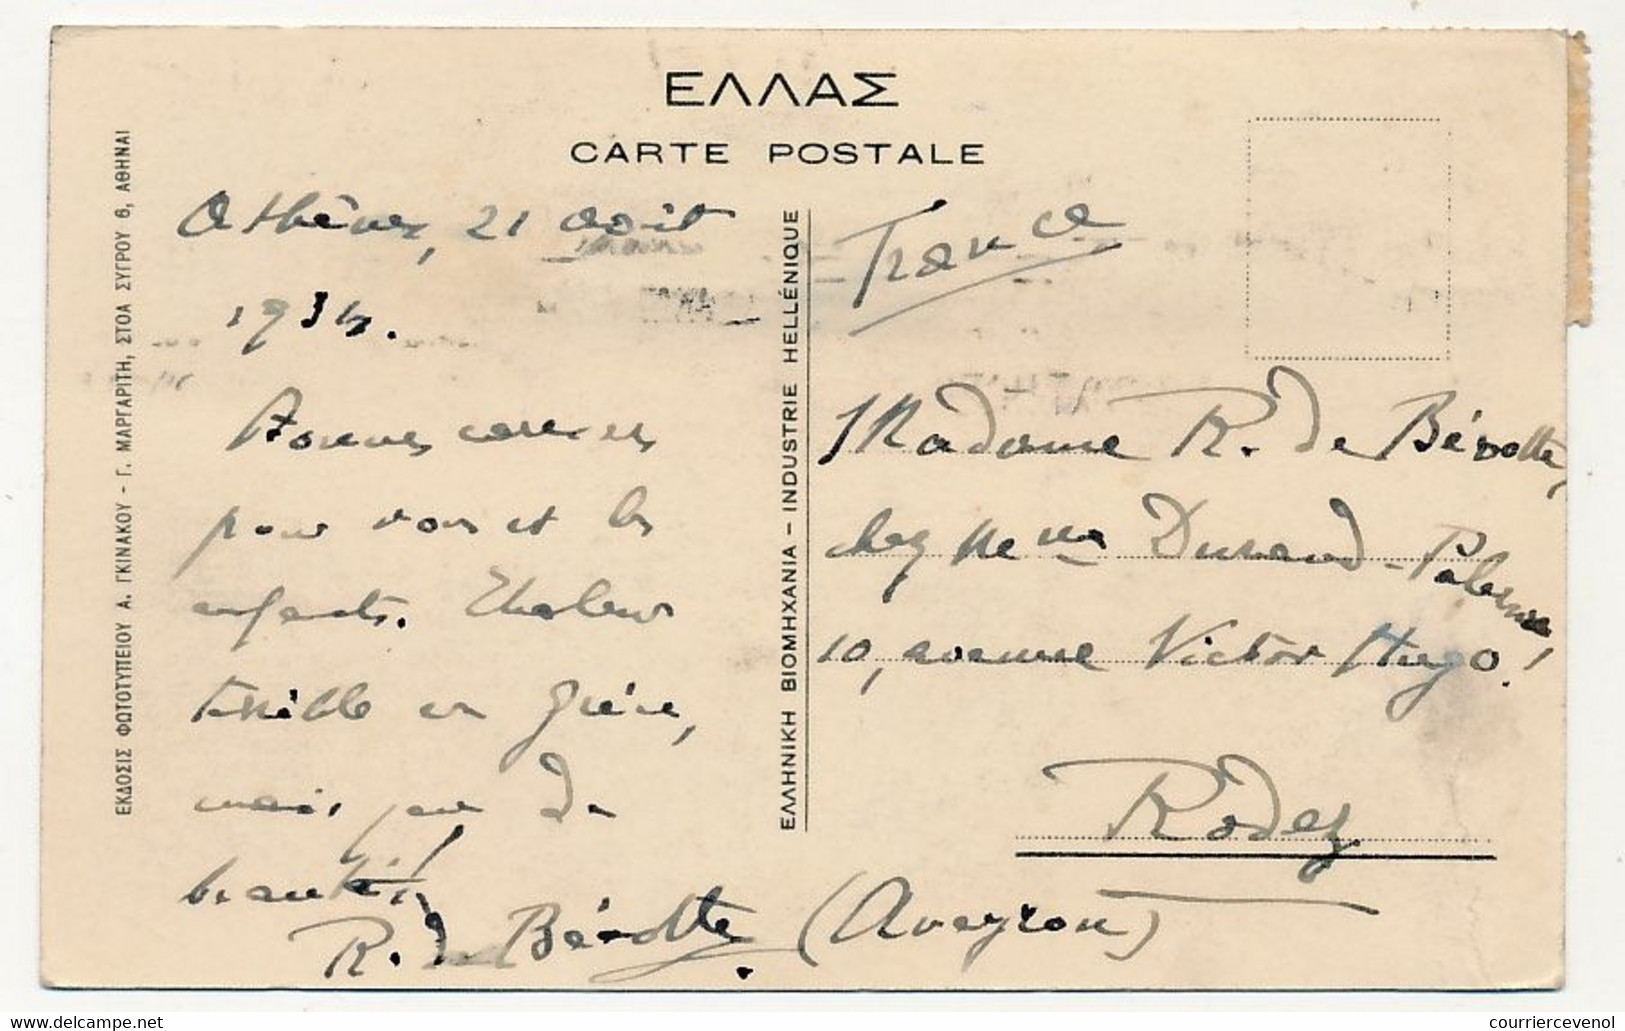 ΕΛΛΑΣ
CARTE POSTALE
Athènes, 21 août
1934.
Bonnes caresses
pour vous et les
enfants. Chaleur
terrible en Grèce,
mais que de
beautés!
R. de Bérotte.
France
Madame R. de Bérotte,
chez Mme Durand-Palerme,
10, avenue Victor Hugo.
Rodez
(Aveyron)
ΕΛΛΗΝΙΚΗ ΒΙΟΜΗΧΑΝΙΑ – INDUSTRIE HELLÉNIQUE
ΕΚΔΟΣΙΣ ΦΩΤΟΤΥΠΕΙΟΥ Α. ΓΚΙΝΑΚΟΥ - Γ. ΜΑΡΓΑΡΙΤΗ, ΣΤΟΑ ΣΥΓΡΟΥ 6, ΑΘΗΝΑΙ
courriercevenol
www.delcampe.net